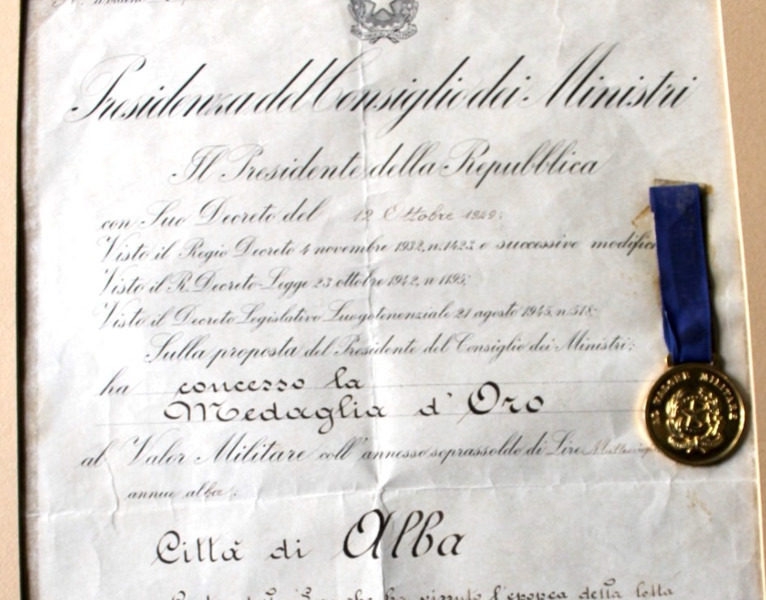 Presidenza del Consiglio dei Ministri
Il Presidente della Repubblica
con Suo Decreto del 12 Ottobre 1949;
Visto il Regio Decreto 4 novembre 1932, n. 1423 e successive modific
Visto il R. Decreto-Legge 23 ottobre 1942, n 1195;
Visto il Decreto Legislativo Luogotenenziale 21 agosto 1945, n. 518;
Sulla proposta del Presidente del Consiglio dei Ministri;
ha concesso la
Medaglia d'Oro
al Valor Militare coll'annesso soprassoldo di Lire
annue alla:
Città di Alba
che ha vissuto l'epopea della lotta
AL VALORE MILITARE